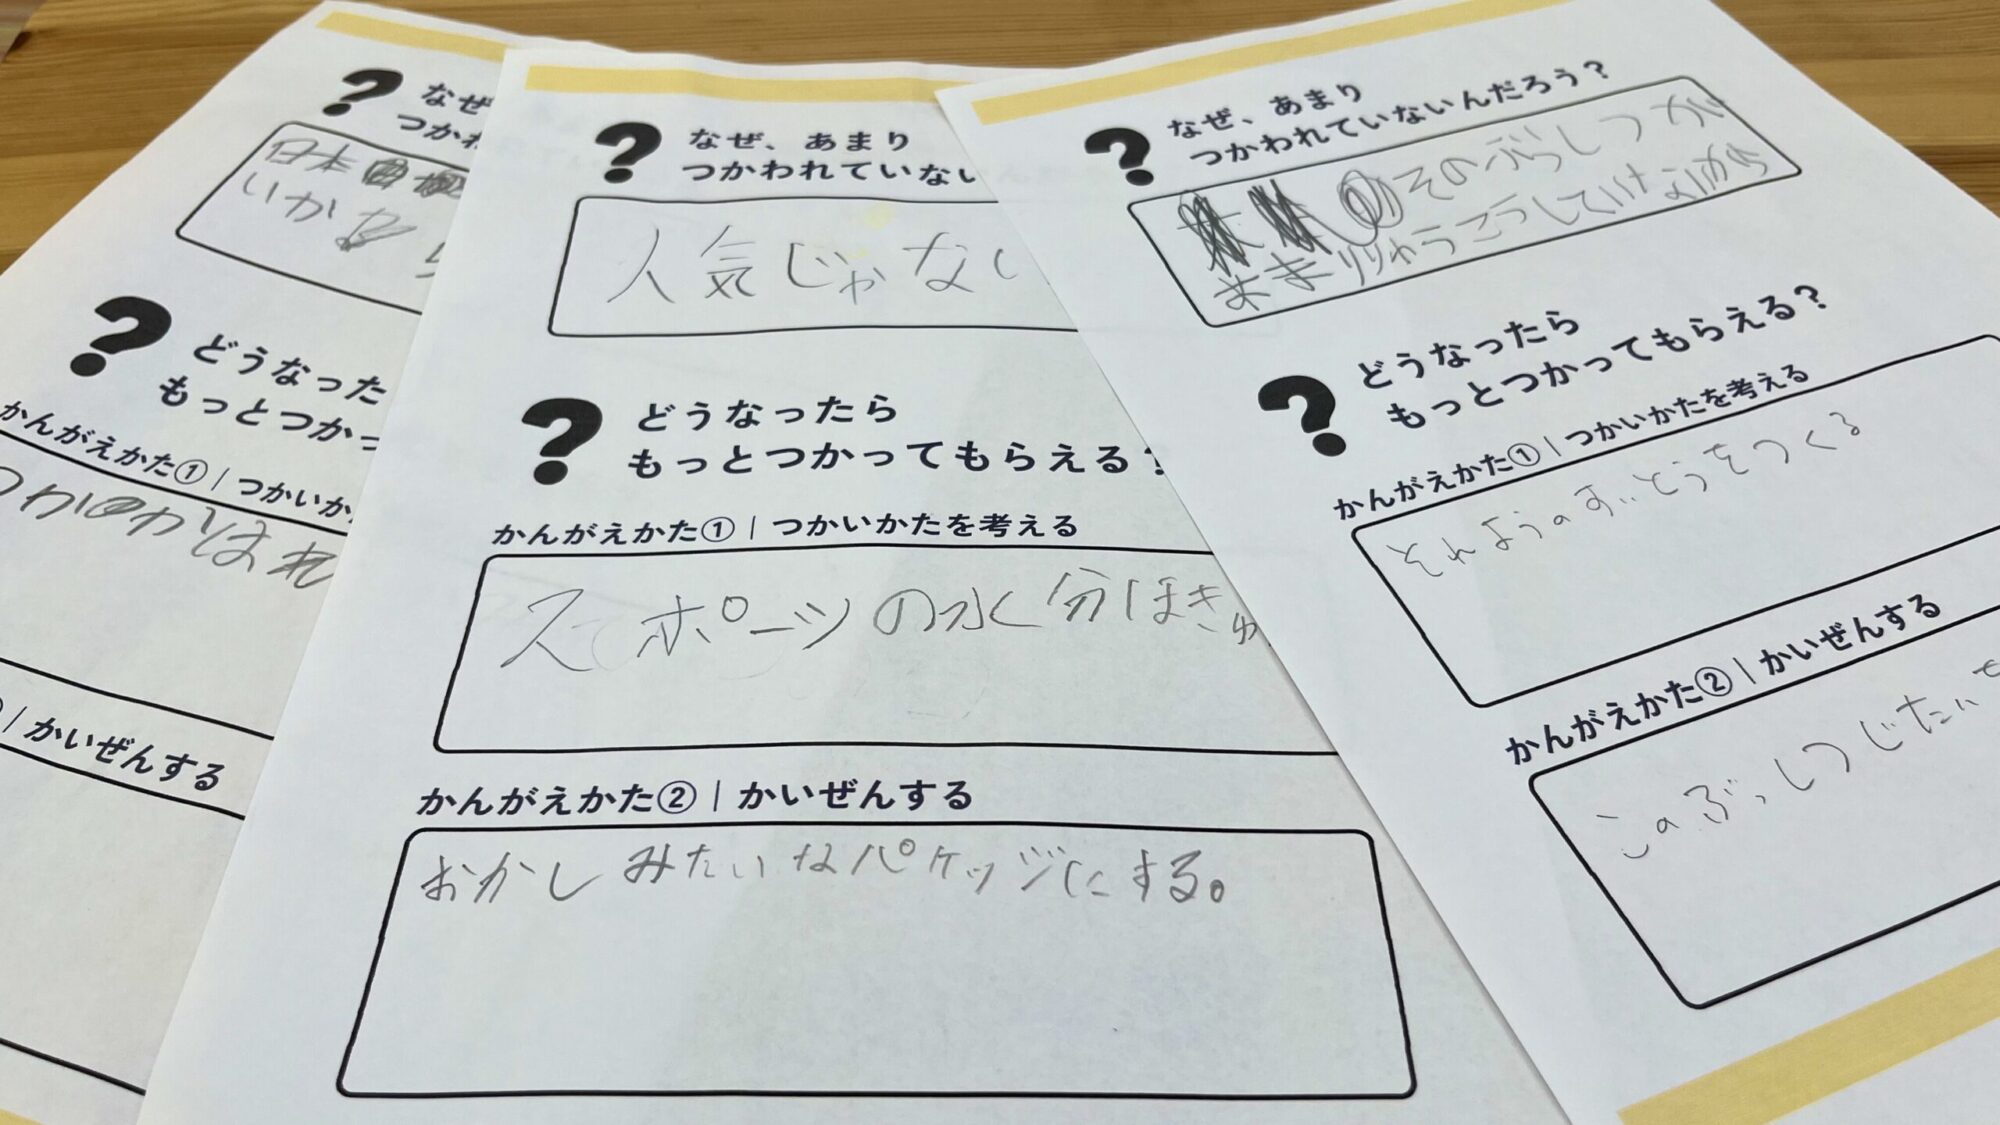 なぜ
つかわ
日本
いか
どうなった
もっとつかっ
かんがえかた① | つかいか
かいぜんする
なぜ、あまり
つかわれていない
人気じゃない
どうなったら
もっとつかってもらえる?
かんがえかた① | つかいかたを考える
スポーツの水分ほきゅ
かんがえかた② | かいぜんする
おかしみたいなパケッジにする。
なぜ、あまり
つかわれていないんだろう?
そのぶっしつが
あまりりゅうこうしていけないから
どうなったら
もっとつかってもらえる?
かんがえかた① | つかいかたを考える
それようのすいとうをつくる
かんがえかた② | かいぜんする
このぶっしつじたいで